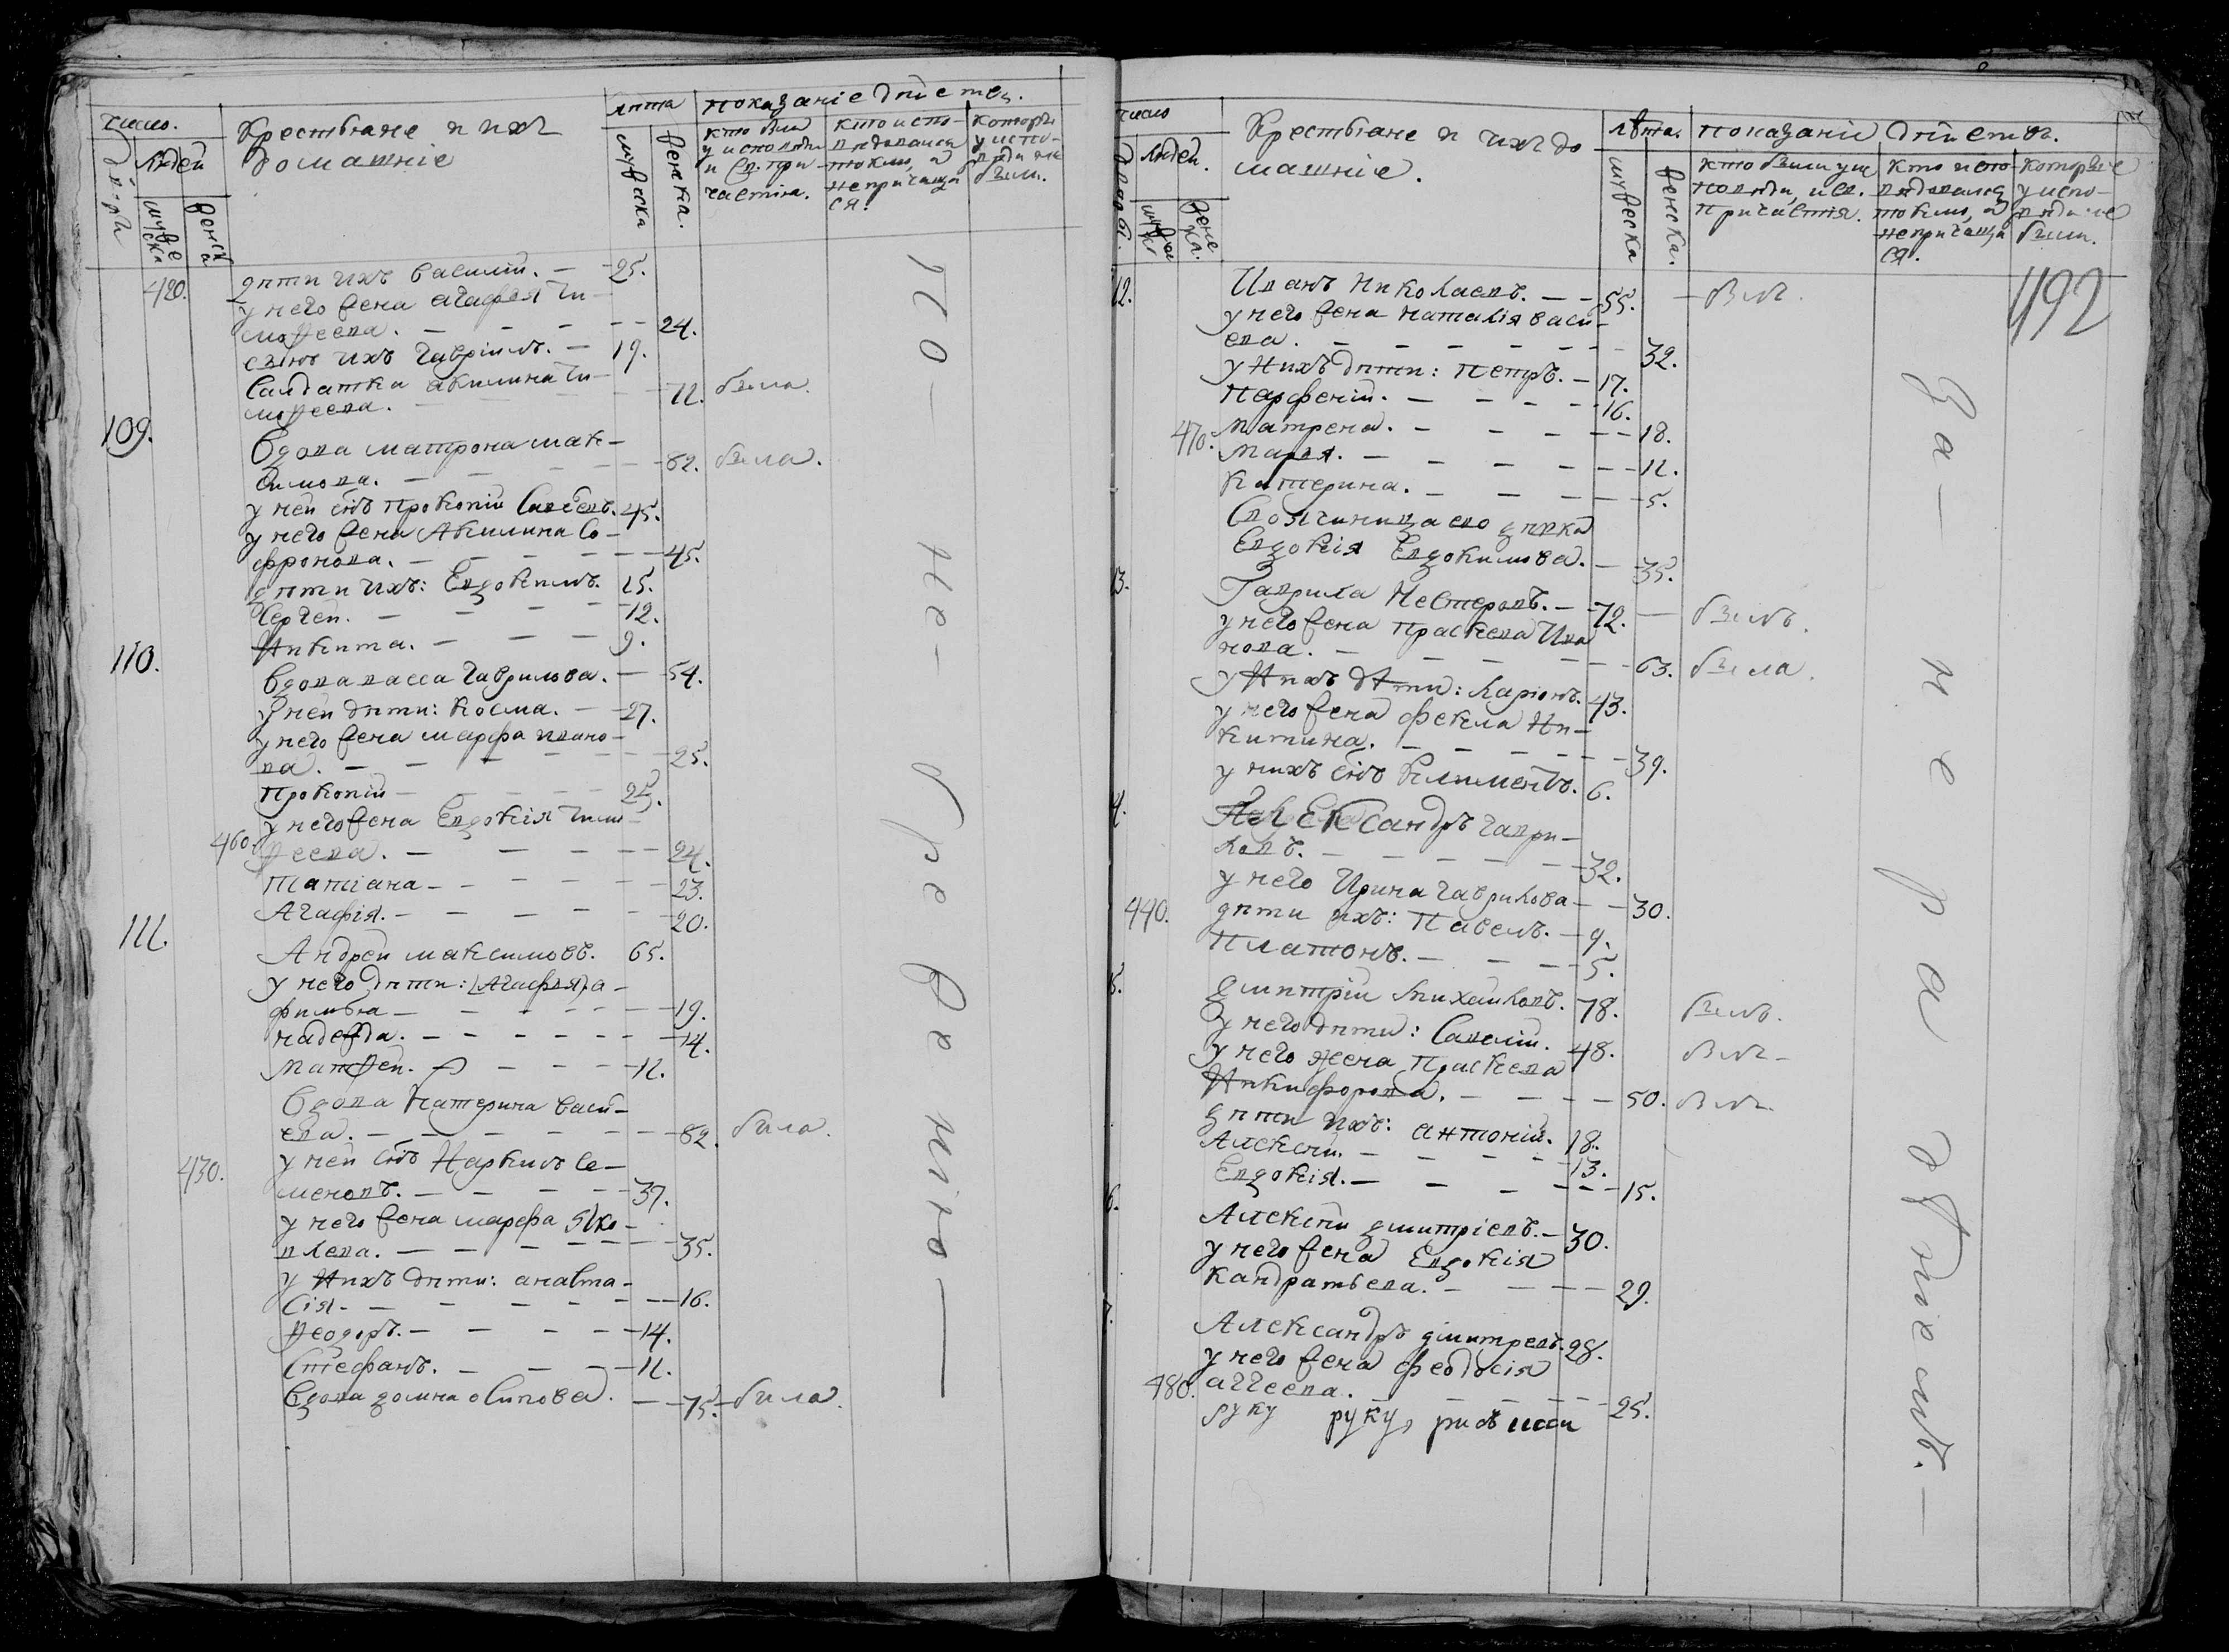 число.
Крестьяне и ихъ
домашніе
лѣта
показаніе дѣйствъ.
дворы
людей
мужеска
женска
мужеска
женска.
кто былъ
у исповѣди
и св. при-
частія.
кто испо-
вѣдовался
токмо, а
не причащал
ся.
которые
у испо-
вѣди не
были.
420.
дѣти ихъ Василій. — 25.
у него жена Агафья Ти-
мофеева. — 24.
сынъ ихъ Гавріилъ. — 19.
Салдатка Акилина Ти-
мофеева. — 72. была.
109.
Вдова Матрона Мак-
симова. — 82. была.
у ней снъ Прокопій 45.
у него жена Акилина Со-
фронова. — 45.
дѣти ихъ: Евдокимъ. 15.
Сергей. — 12.
Никита. — 9.
110.
Вдова Васса Гаврилова. — 54.
у ней дѣти: Косма. — 27.
у него жена Марфа Ивано-
ва. — 25.
Прокопій — 25.
у него жена Евдокія Тимо-
460. феева. — 24.
Татіана — 23.
Агафія. — 20.
111.
Андрей Максимовъ. 65.
у него дѣти: (Агафья) а-
фимья — 19.
надежда. — 14.
Матфей. — 11.
Вдова Катерина Васи-
ева. — 82. была.
430.
у ней снъ Наркилъ Се-
меновъ. — 37.
у него жена Марфа Яко-
влева. — 35.
у Нихъ дѣти: анаста-
сія. — 16.
Феодоръ. — 14.
Стефанъ. — 11.
Вдова домна осипова. — 75. — была.
по - не - бре же нію —
число
Крестьяне и ихъ до
машніе.
лѣта.
показаніи дѣйствъ.
двора
людей.
мужес
женс
ка.
мужеска
женска.
кто были у ис
повѣди, и св.
причастія.
кто испо-
вѣдовался
токмо, а
не причаща
ся.
которые
у испо-
вѣди не
были.
492
12.
Иванъ Николаевъ. — 55. — былъ.
у него жена Наталія Васи-
ева. — 32.
у Нихъ дѣти: Петръ. — 17.
Парфеній. — 16.
470. Матрена. — 18.
Марья. — 11.
Катерина. — 5.
Своячиница ево дѣвка
Евдокія Евдокимова. — 35.
13.
Гаврила Нестеровъ. — 72. — былъ.
у него жена Праскева Ива
нова. — 63. была.
у Нихъ дѣти: Ларіонъ. 43.
у него жена Фекла Ни-
китина. — 39.
у нихъ снъ Климентъ. 6.
4.
Александръ Гаври-
ловъ. — 32.
у него Ирина Гаврилова — 30.
440. дѣти ихъ: Павелъ. — 9.
Платонъ. — 5.
5.
Дмитрій Михайловъ. 78. былъ.
у него дѣти: Савелій. 48. былъ —
у него жена Праскева
Никифорова. — 50. былъ.
дѣти ихъ: антоній. 18.
Алексѣй. — 13.
Евдокія. — 15.
6.
Алексѣй Дмитріевъ. — 30.
у него жена Евдокія
Кандратьева. — 29.
7.
Александръ Дмитревъ. 28.
у него жена Феодосія
480. аггеева. — 25.
руку руку,
За — не ра дѣніемъ. —